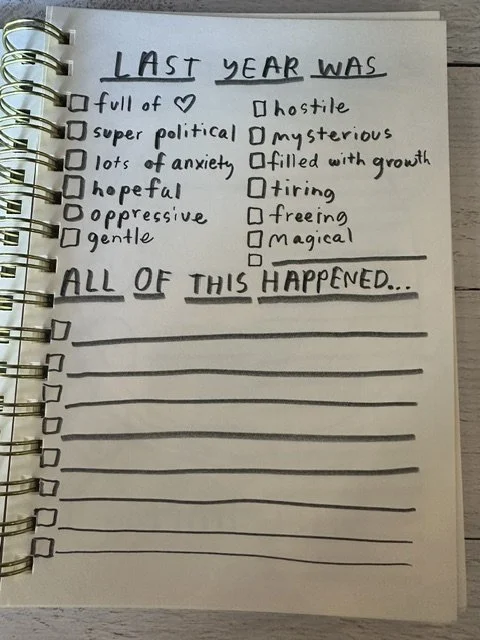 LAST YEAR WAS
full of ♡
super political
lots of anxiety
hopeful
oppressive
gentle
hostile
mysterious
filled with growth
tiring
freeing
magical
ALL OF THIS HAPPENED...